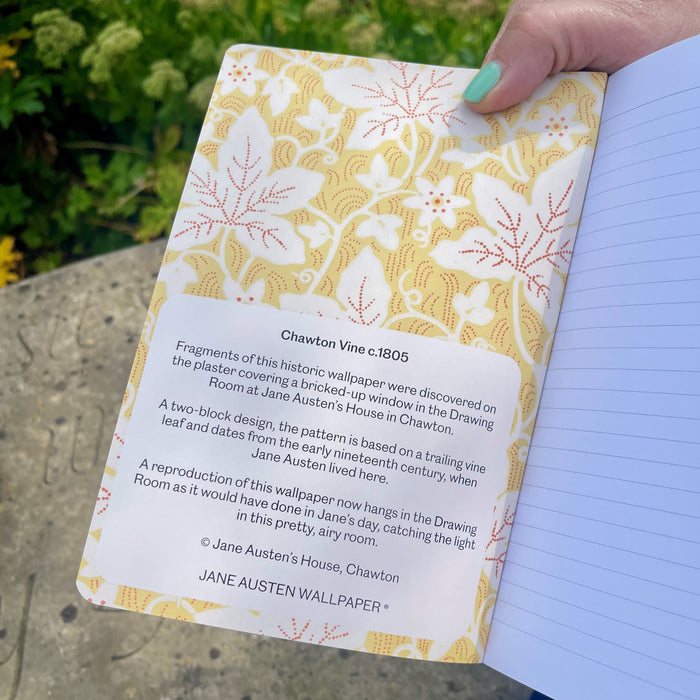 Chawton Vine c.1805
Fragments of this historic wallpaper were discovered on
the plaster covering a bricked-up window in the Drawing
Room at Jane Austen's House in Chawton.
A two-block design, the pattern is based on a trailing vine
leaf and dates from the early nineteenth century, when
Jane Austen lived here.
A reproduction of this wallpaper now hangs in the Drawing
Room as it would have done in Jane's day, catching the light
in this pretty, airy room.
© Jane Austen's House, Chawton
JANE AUSTEN WALLPAPER ®